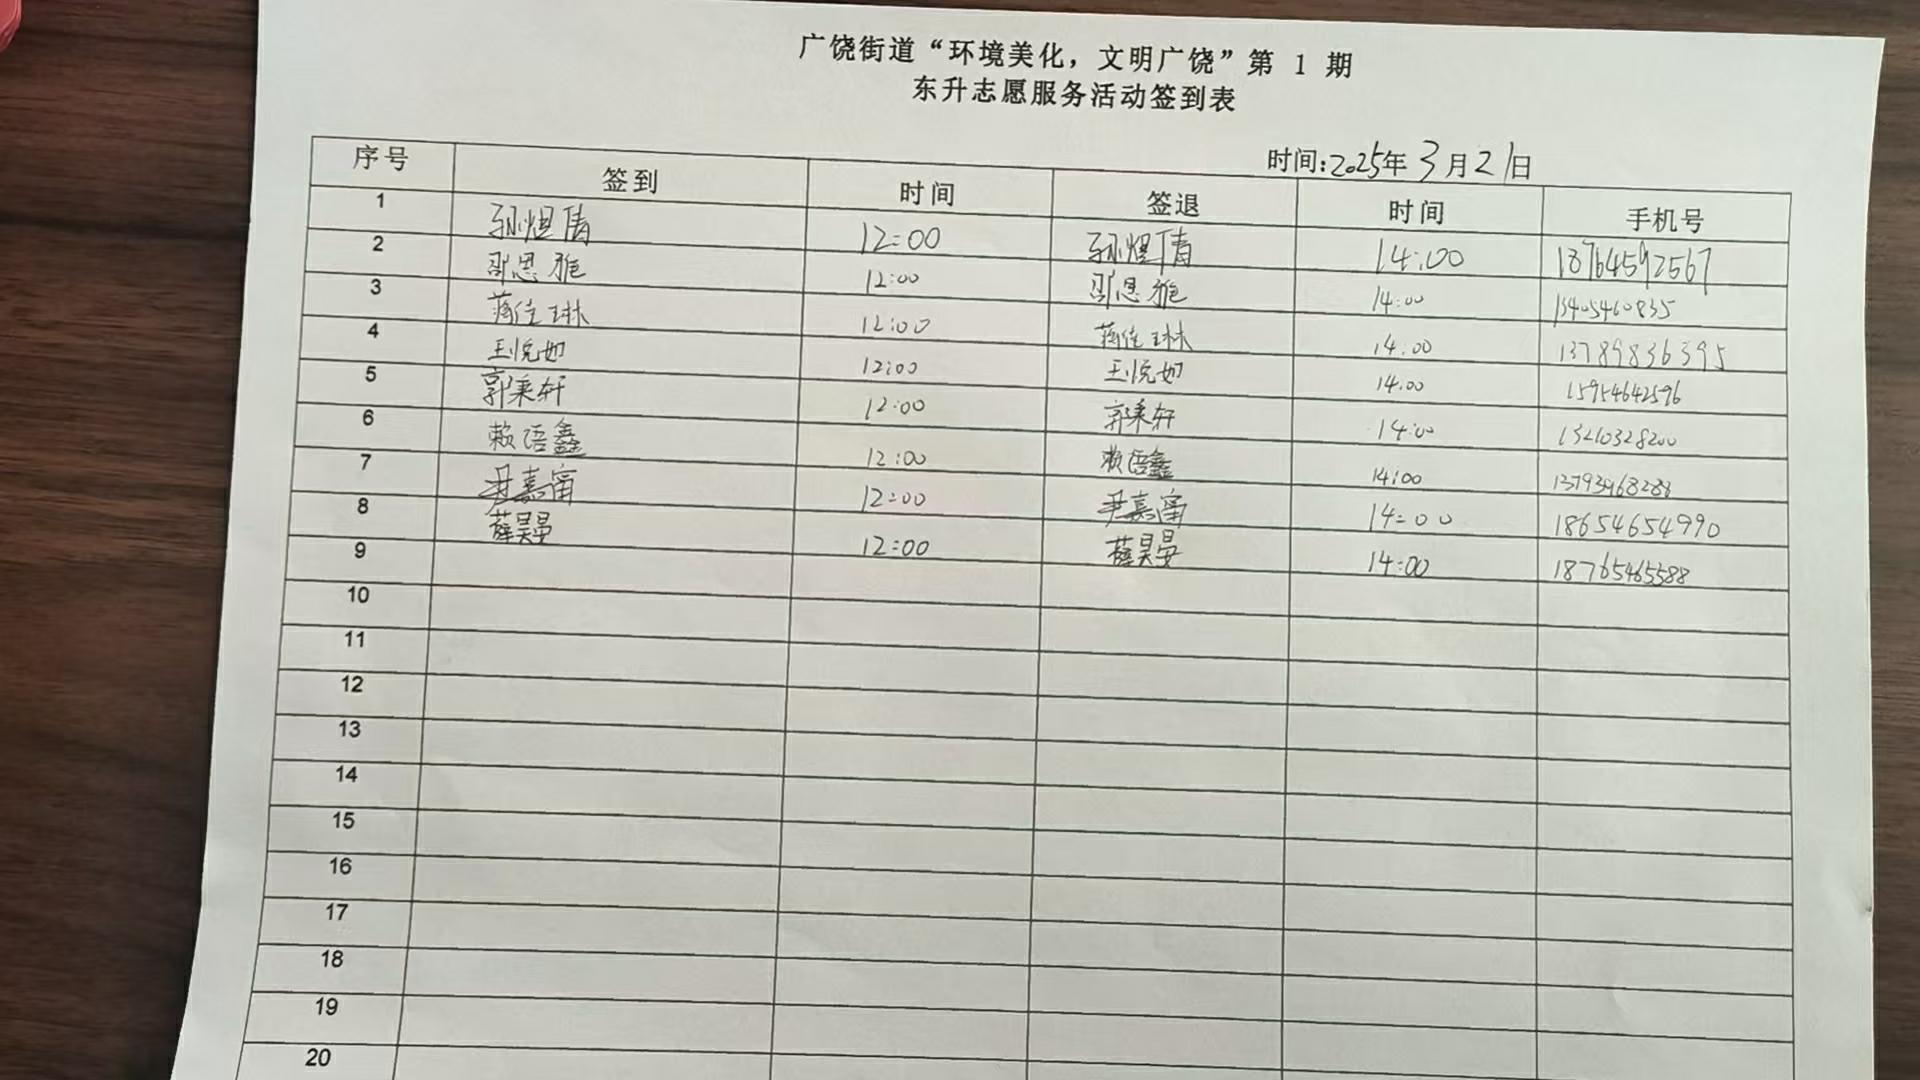 广饶街道“环境美化，文明广饶”第 1 期
东升志愿服务活动签到表
时间:2025年3月21日
序号 签到 时间 签退 时间 手机号
1 孙煜倩 12:00 孙煜倩 14:00 18764592567
2 邵思雅 12:00 邵思雅 14:00 13405460835
3 蒋佳琳 12:00 蒋佳琳 14:00 13789836395
4 王悦如 12:00 王悦如 14:00 15954642596
5 郭秉轩 12:00 郭秉轩 14:00 13210328200
6 赖语鑫 12:00 赖语鑫 14:00 13793468288
7 尹嘉甯 12:00 尹嘉甯 14:00 18654654990
8 薛昊晏 12:00 薛昊晏 14:00 18765465588
9
10
11
12
13
14
15
16
17
18
19
20